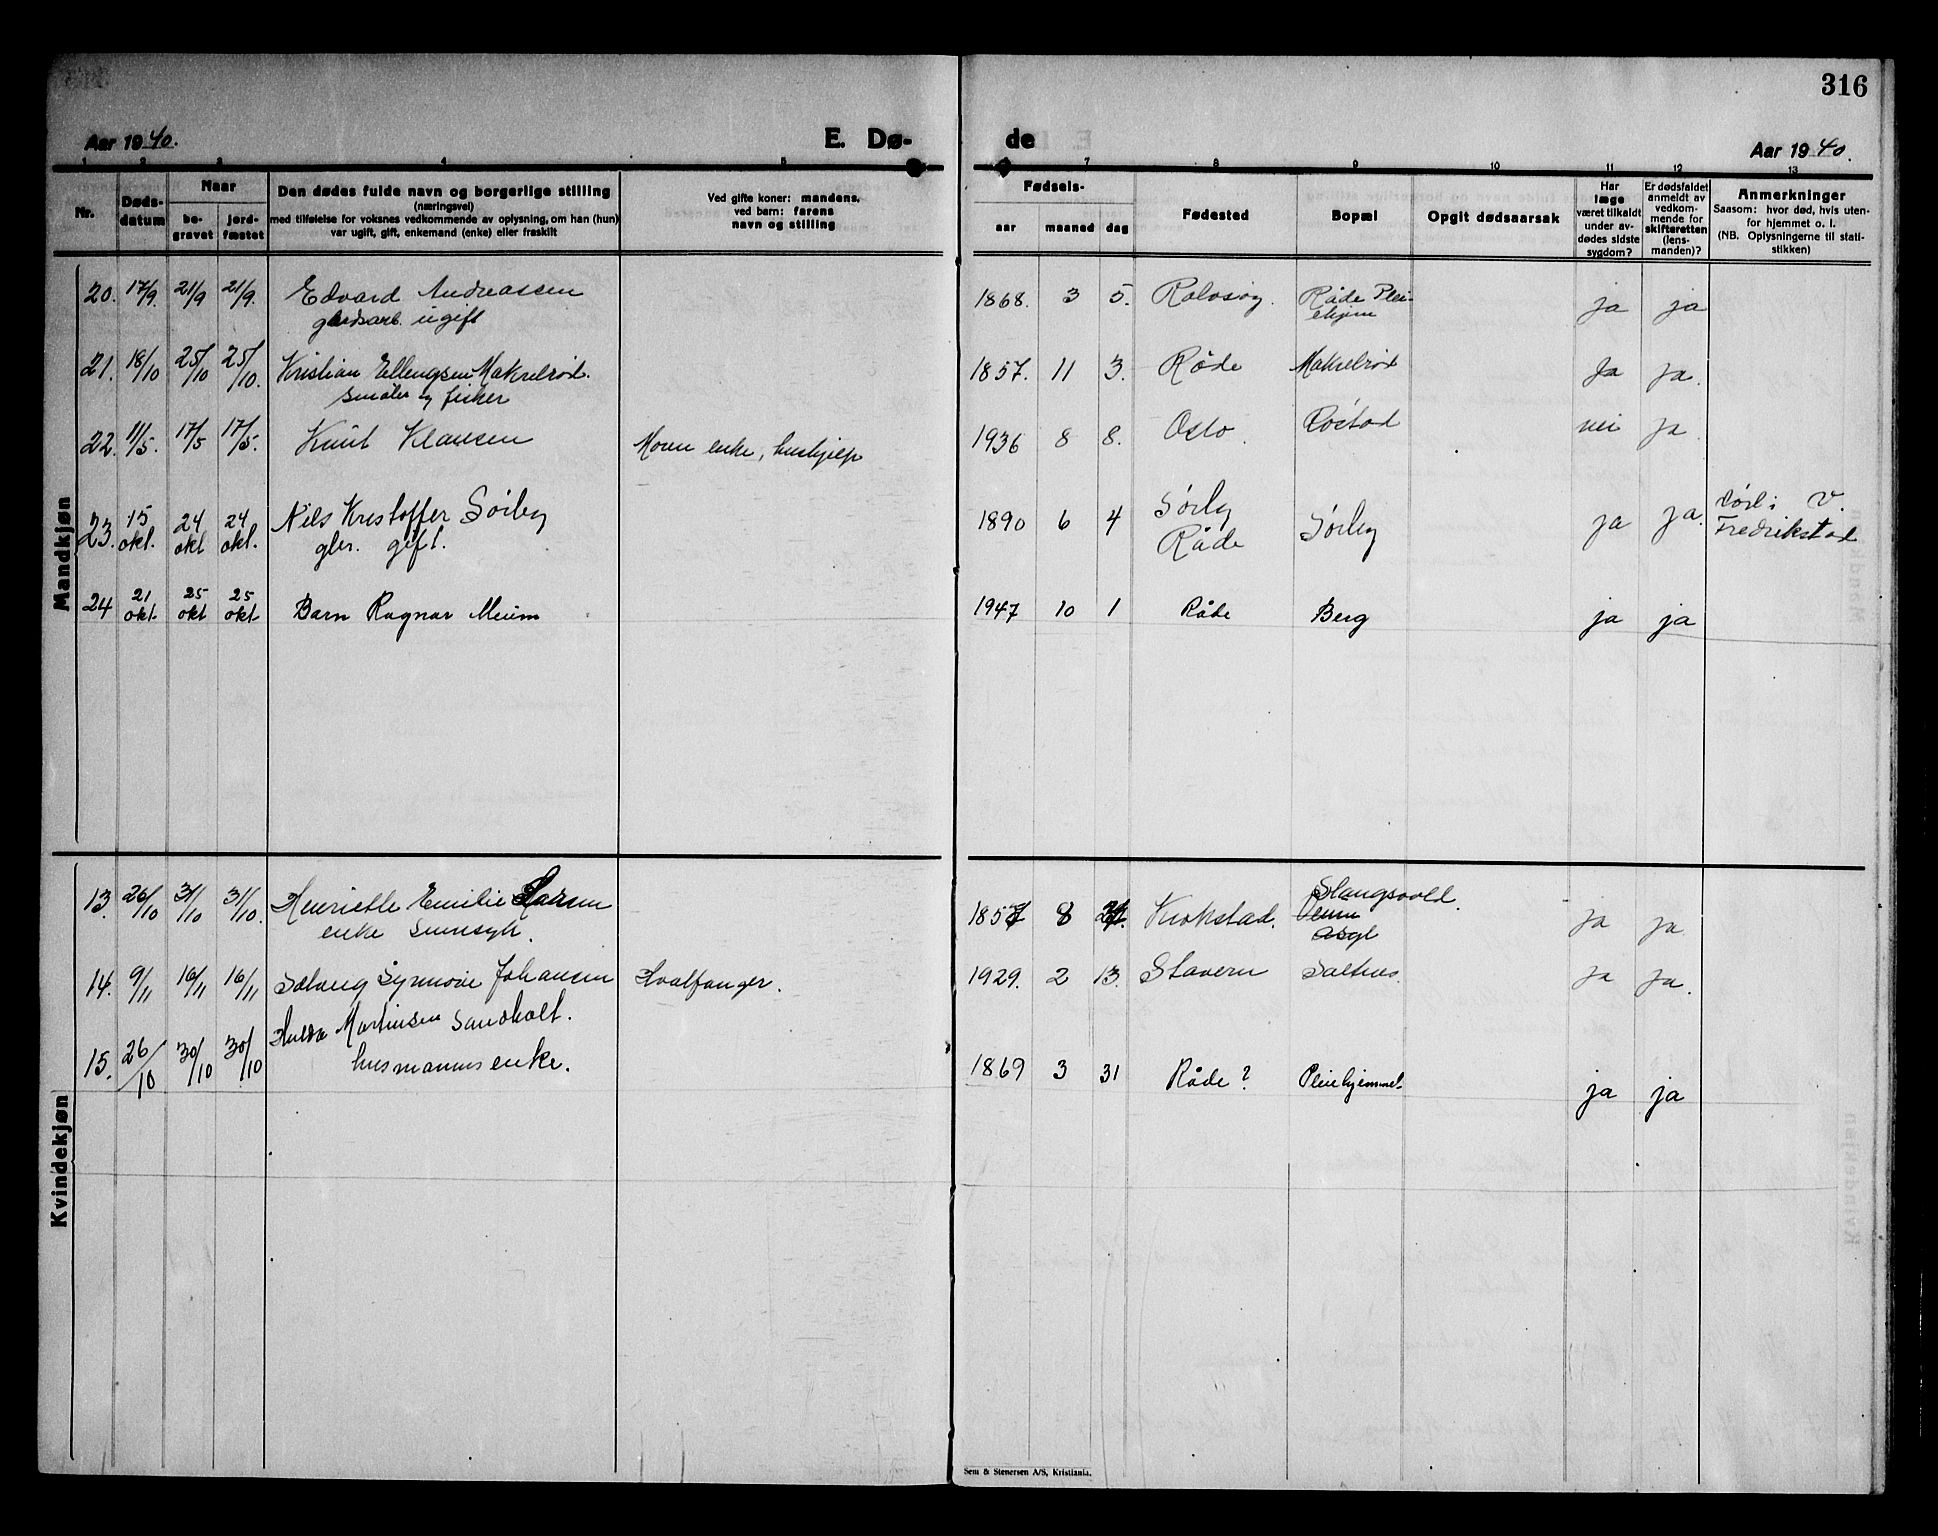 316
Aar 1940.
E. Dø-
de
Aar 1940.
1 2 3 4 5 7 8 9 10 11 12 13
Nr.
Døds-
datum
Naar
be-
gravet
jord-
fæstet
Den dødes fulde navn og borgerlige stilling
(næringsvei)
med tilføielse for voksnes vedkommende av oplysning, om han (hun)
var ugift, gift, enkemand (enke) eller fraskilt
Ved gifte koner: mandens,
ved barn: farens
navn og stilling
Fødsels-
aar maaned dag
Fødested
Bopæl
Opgit dødsaarsak
Har
læge
været tilkaldt
under av-
dødes sidste
sygdom?
Er dødsfaldet
anmeldt av
vedkom-
mende for
skifteretten
(lens-
manden)?
Anmerkninger
Saasom: hvor død, hvis uten-
for hjemmet o. l.
(NB. Oplysningerne til stati-
stikken)
Mandkjøn
20. 17/9. 21/9 21/9. Edvard Andreassen 1868. 3 5. Rolvsøy. Råde Plei- ja ja
gårdsarb. ugift ehjem
21. 18/10 25/10 25/10. Kristian Ellengsen Makrelrød. 1857. 11 3. Råde Makrelrød Ja ja.
småbr. og fisker
22. 11/5. 17/5 17/5. Knut Klausen Moren enke, hushjelp 1936 8 8. Oslo. Røstad nei ja
23. 15 okt. 24 okt 24 okt. Nils Kristoffer Sørby 1890 6 4 Sørby Sørby ja ja. V.
gbr. gift. Råde Fredrikstad
24 21 okt. 25 okt 25 okt Barn Ragnar Meum 1947 10 1 Råde Berg ja ja
Kvindekjøn
13. 26/10 31/10 31/10. Henriette Emilie Larsen 1857 8 Krokstad. Slangsvold. ja ja
enke sinnsyk. asyl
14. 9/11 16/11 16/11 Solveig Synnøve Johansen Hvalfanger. 1929. 2 13. Stavern Saltnes ja ja.
15. 26/10 30/10 30/10 Hulda Martinsen Sandholt. 1869 3 31 Råde? Pleiehjemmet ja ja
husmanns enke.
Sem & Stenersen A/S, Kristiania.